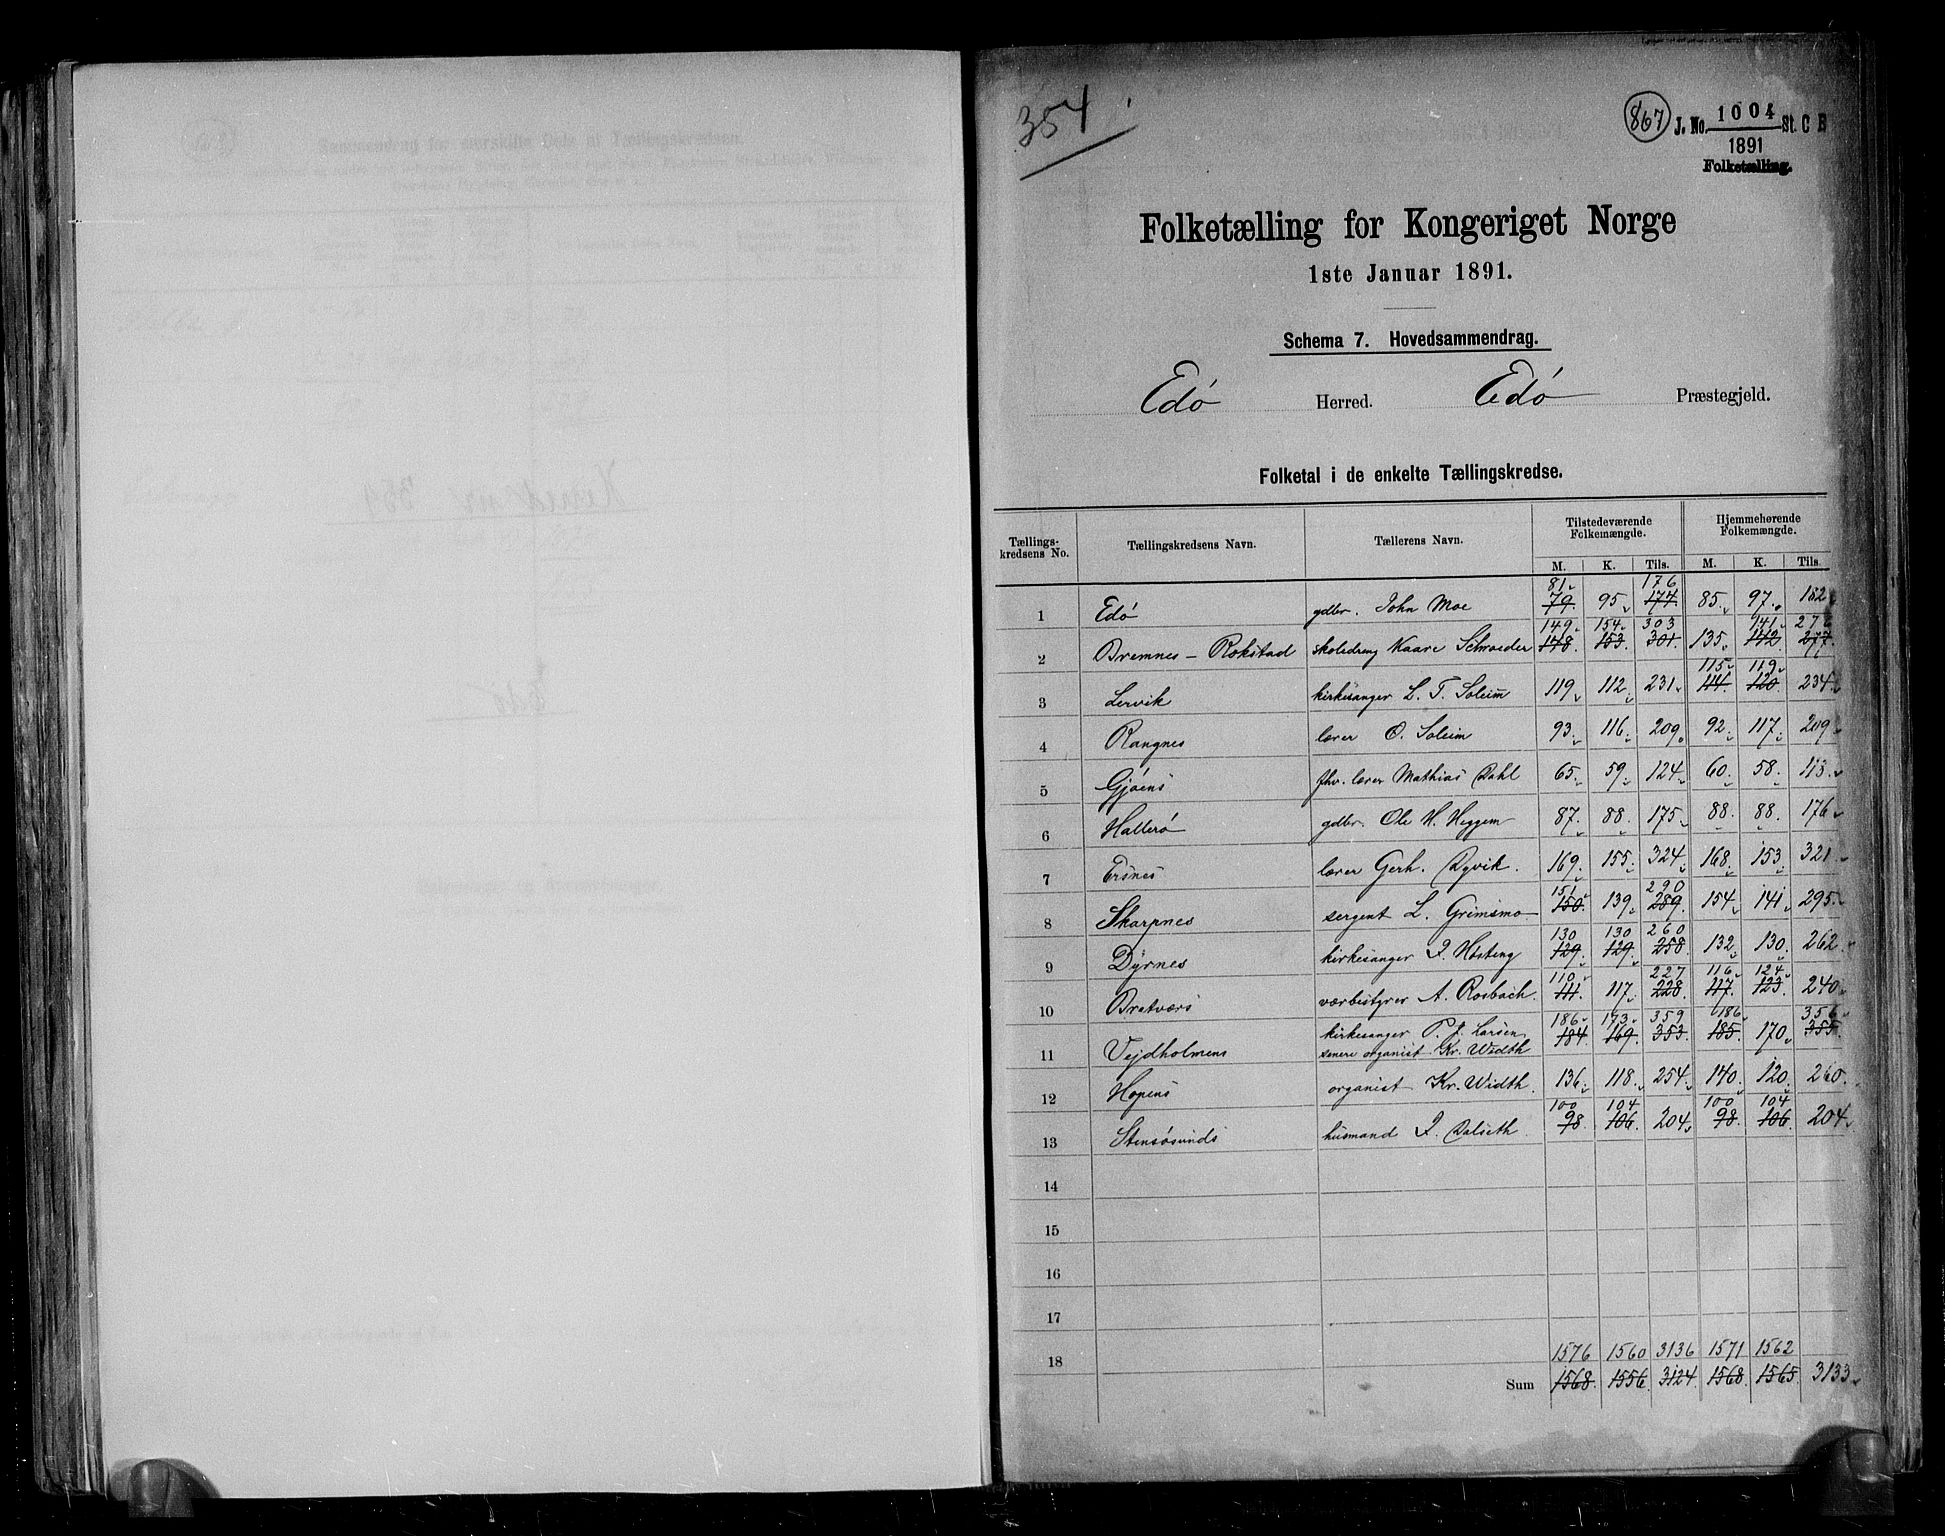 354
867 J. No. 1004 St. C B
1891
Folketælling.
Folketælling for Kongeriget Norge
1ste Januar 1891.
Schema 7. Hovedsammendrag.
Edø Herred. Edø Præstegjeld.
Folketal i de enkelte Tællingskredse.
Tællings- kredsens No. Tællingskredsens Navn. Tællerens Navn. Tilstedeværende Folkemængde. Hjemmehørende Folkemængde.
M. K. Tils. M. K. Tils.
81 176
1 Edø gdbr. John Moe 79 95 174 85 97 182
149 154 303 141 276
2 Bremnes - Rokstad skoledreng Kaare Schrøeder 148 153 301 135 142 277
115 119
3 Lervik kirkesanger L. T. Soleim 119 112 231 114 120 234
4 Rangnes lærer O. Soleim 93 116 209 92 117 209
5 Gjøens fhv. lærer Mathias Dahl 65 59 124 60 58 118
6 Hallerø gdbr. Ole H. Heggem 87 88 175 88 88 176
7 Ersnes lærer Gerh. Dyvik. 169 155 324 168 153 321
151 290
8 Skarpnes sergent L. Grimsmo 150 139 289 154 141 295
130 130 260
9 Dyrnes kirkesanger I. Høsteng 129 129 258 132 130 262
110 227 116 124
10 Bratværs værbestyrer A. Rosbach. 111 117 228 117 123 240
186 173 359 186 356
11 Vejdholmens kirkesanger P. J. Larsen, 184 169 353 185 170 355
senere organist Kr. Width
12 Hopens organist Kr. Width. 136 118 254 140 120 260
100 104 100 104
13 Stensøsunds husmand I. Dalseth 98 106 204 98 106 204
14
15
16
17
18 1576 1560 3136 1571 1562
Sum 1568 1556 3124 1568 1565 3133